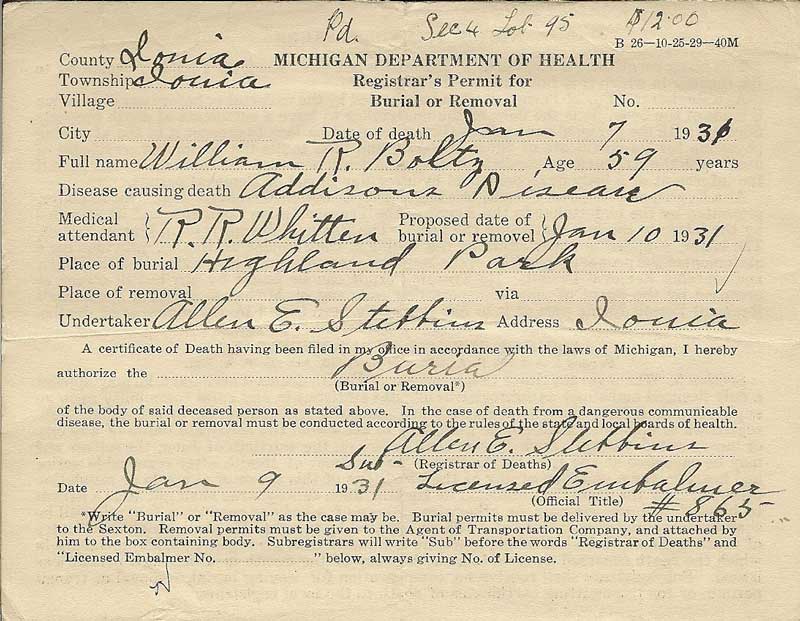 Pd. Sec 4 Lot 95 $12.00
B 26—10-25-29—40M
County Ionia MICHIGAN DEPARTMENT OF HEALTH
Township Ionia Registrar's Permit for
Village Burial or Removal No.
City Date of death Jan 7 1931
Full name William R. Boltz Age 59 years
Disease causing death Addisons Disease
Medical attendant R. R. Whitten Proposed date of burial or removel Jan 10 1931
Place of burial Highland Park
Place of removal via
Undertaker Allen E. Stebbins Address Ionia
A certificate of Death having been filed in my office in accordance with the laws of Michigan, I hereby
authorize the Burial
(Burial or Removal*)
of the body of said deceased person as stated above. In the case of death from a dangerous communicable
disease, the burial or removal must be conducted according to the rules of the state and local boards of health.
Allen E. Stebbins
Sub- (Registrar of Deaths)
Date Jan 9 1931 Licensed Embalmer
(Official Title) # 865
*Write "Burial" or "Removal" as the case may be. Burial permits must be delivered by the undertaker
to the Sexton. Removal permits must be given to the Agent of Transportation Company, and attached by
him to the box containing body. Subregistrars will write "Sub" before the words "Registrar of Deaths" and
"Licensed Embalmer No. " below, always giving No. of License.